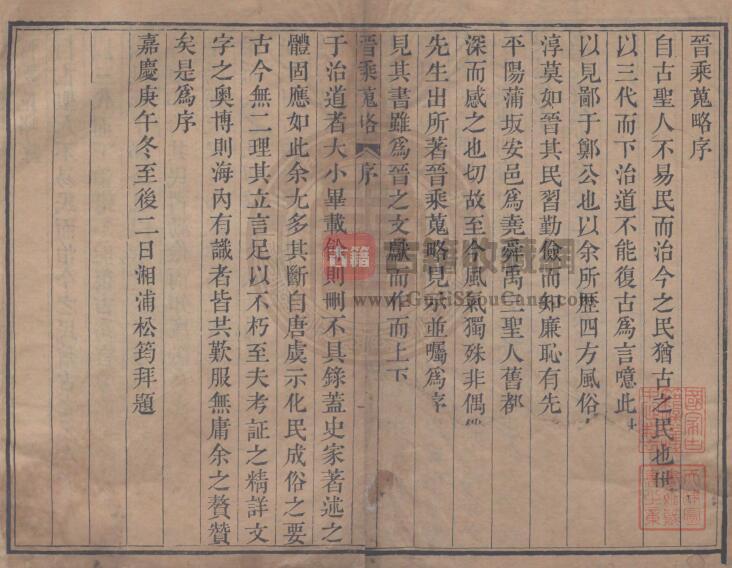 晉乘蒐略序
自古聖人不易民而治今之民猶古之民也
以三代而下治道不能復古爲言噫此
以見鄙于鄭公也以余所歷四方風俗
淳莫如晉其民習勤儉而知廉恥有先
平陽蒲坂安邑爲堯舜禹三聖人舊都
深而感之也切故至今風氣獨殊非偶
先生出所著晉乘蒐略見示並囑爲序
見其書雖爲晉之文獻而作而上下
晉乘蒐略 序
于治道者大小畢載餘則刪不具錄蓋史家著述之
體固應如此余尤多其斷自唐虞示化民成俗之要
古今無二理其立言足以不朽至夫考証之精詳文
字之奧博則海內有識者皆共歎服無庸余之贅贊
矣是爲序
嘉慶庚午冬至後二日湘浦松筠拜題
古籍
古籍收藏網
www.GujiShouCang.com